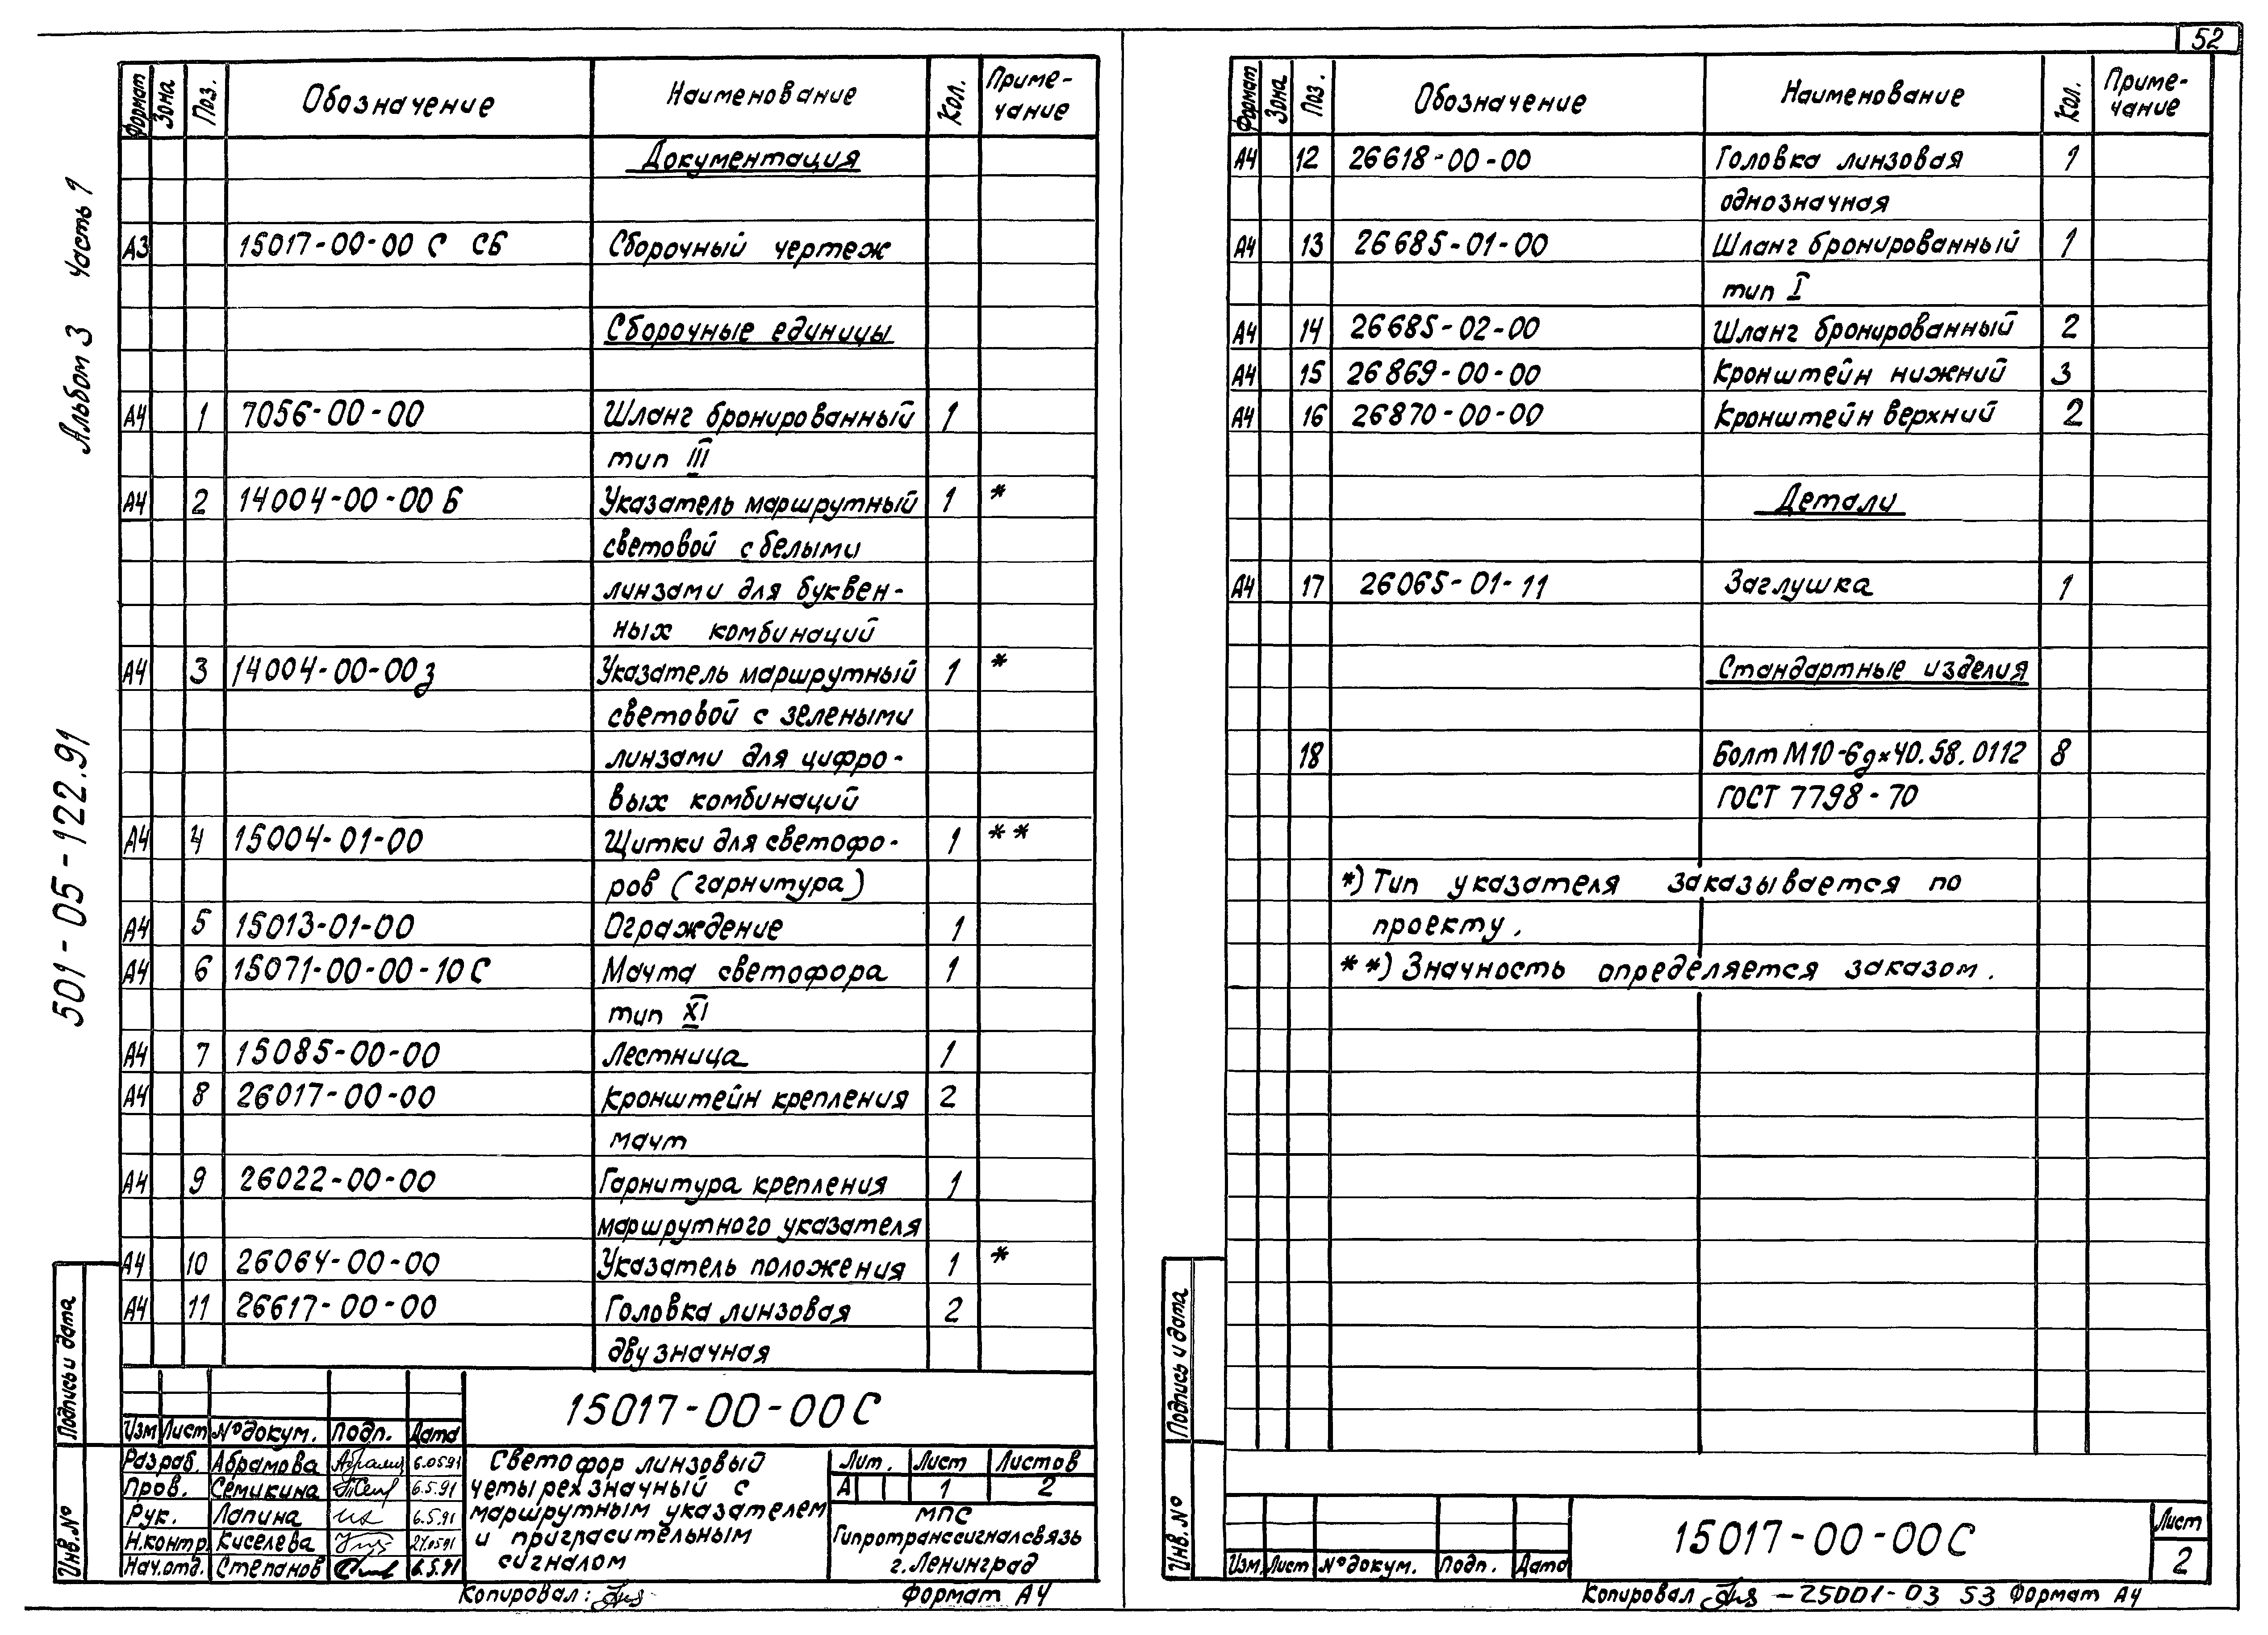 52
Альбом 3 часть 1
501-05-122.91
Формат Зона Поз. Обозначение Наименование Кол. Приме-
чание
Документация
А3 15017-00-00 С СБ Сборочный чертеж
Сборочные единицы
А4 1 7056-00-00 Шланг бронированный 1
тип III
А4 2 14004-00-00 Б Указатель маршрутный 1 *
световой с белыми
линзами для буквен-
ных комбинаций
А4 3 14004-00-00 з Указатель маршрутный 1 *
световой с зелеными
линзами для цифро-
вых комбинаций
А4 4 15004-01-00 Щитки для светофо- 1 **
ров (гарнитура)
А4 5 15013-01-00 Ограждение 1
А4 6 15071-00-00-10С Мачта светофора 1
тип XI
А4 7 15085-00-00 Лестница 1
А4 8 26017-00-00 Кронштейн крепления 2
мачт
А4 9 26022-00-00 Гарнитура крепления 1
маршрутного указателя
А4 10 26064-00-00 Указатель положения 1 *
А4 11 26617-00-00 Головка линзовая 2
двузначная
Подпись и дата
Инв. №
15017-00-00С
Изм Лист № докум. Подп. Дата
Разраб. Абрамова 6.05.91
Пров. Семикина 6.5.91
Рук. Лапина 6.5.91
Н.контр. Киселева 27.05.91
Нач.отд. Степанов 6.5.91
Светофор линзовый
четырехзначный с
маршрутным указателем
и пригласительным
сигналом
Лит. Лист Листов
А 1 2
МПС
Гипротранссигналсвязь
г.Ленинград
Копировал: Формат А4
Формат Зона Поз. Обозначение Наименование Кол. Приме-
чание
А4 12 26618-00-00 Головка линзовая 1
однозначная
А4 13 26685-01-00 Шланг бронированный 1
тип I
А4 14 26685-02-00 Шланг бронированный 2
А4 15 26869-00-00 Кронштейн нижний 3
А4 16 26870-00-00 Кронштейн верхний 2
Детали
А4 17 26065-01-11 Заглушка 1
Стандартные изделия
18 Болт М10-6gх40.58.0112 8
ГОСТ 7798-70
*) Тип указателя заказывается по
проекту.
**) Значность определяется заказом.
Подпись и дата
Инв. №
Изм. Лист № докум. Подп. Дата
15017-00-00С
Лист
2
Копировал - 25001-03 53 Формат А4